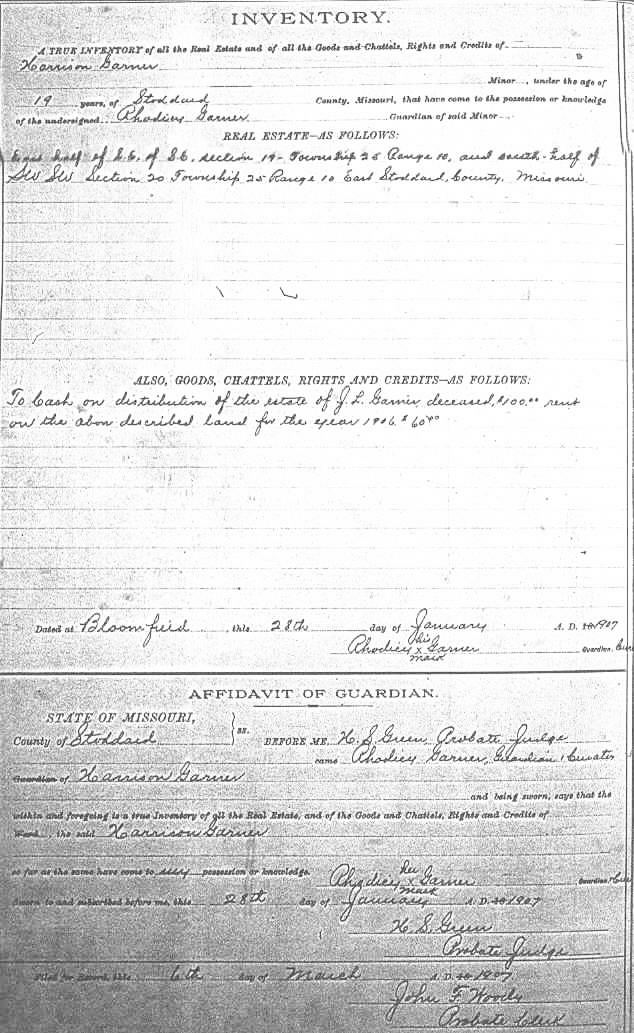 INVENTORY.
A TRUE INVENTORY of all the Real Estate and of all the Goods and Chattels, Rights and Credits of
Harrison Garner
Minor , under the age of
19 years, of Stoddard County, Missouri, that have come to the possession or knowledge
of the undersigned Rhodiey Garner Guardian of said Minor
REAL ESTATE—AS FOLLOWS:
East half of S.E. of S.E. section 19- Township 25 Range 10, and south-half of
SW SW Section 20 Township 25 Range 10 East Stoddard, County, Missouri
ALSO, GOODS, CHATTELS, RIGHTS AND CREDITS—AS FOLLOWS:
To Cash on distribution of the estate of J. L. Garner, deceased, $100.00 rent
on the abov described land for the year 1906. $60.00
Dated at Bloomfield , this 28th day of January A. D. 1907
his
Rhodiey x Garner Guardian
mark
AFFIDAVIT OF GUARDIAN.
STATE OF MISSOURI,
County of Stoddard } ss. BEFORE ME H. S. Green Probate Judge
came Rhodiey Garner, Guardian & Curator
Guardian of Harrison Garner
and being sworn, says that the
within and foregoing is a true Inventory of all the Real Estate, and of the Goods and Chattels, Rights and Credits of
, the said Harrison Garner
so far as the same have come to possession or knowledge.
her
Rhodiey x Garner Guardian
mark
Sworn to and subscribed before me, this 28th day of January A. D. 1907
H. S. Green
Probate Judge
Filed for Record, this 6th day of March A. D. 1907
John F Woody
Probate Clerk